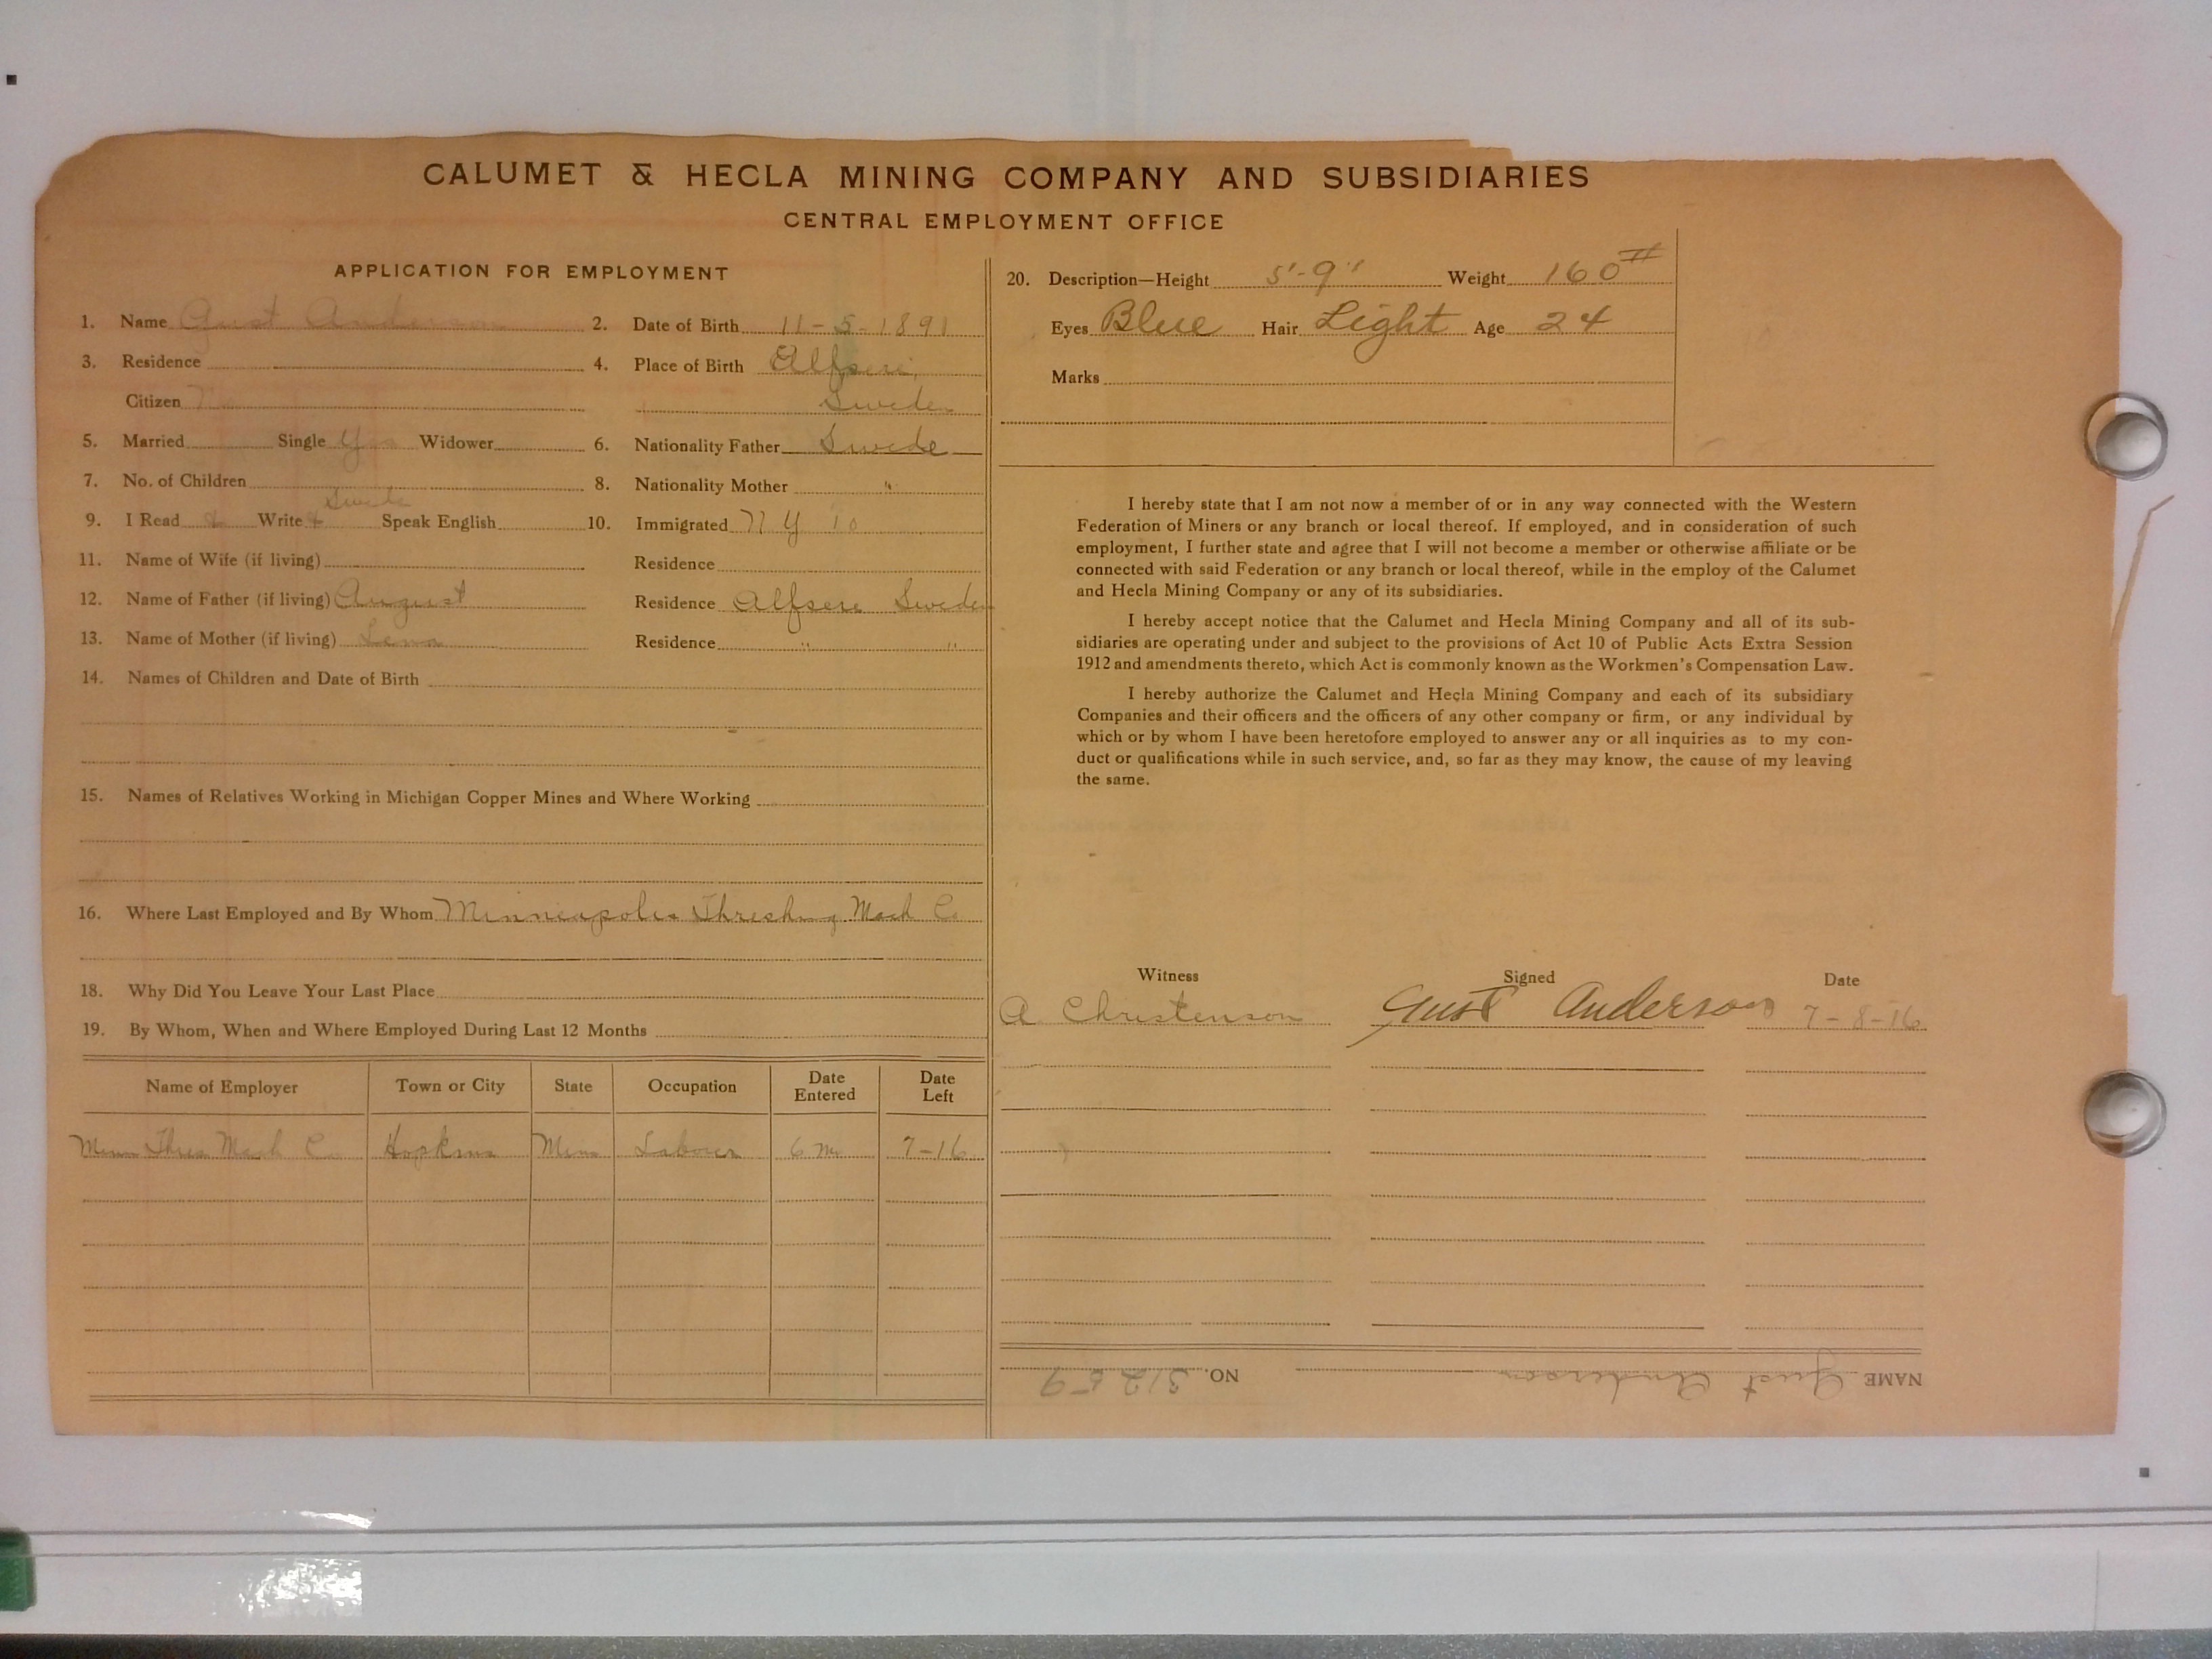 CALUMET & HECLA MINING COMPANY AND SUBSIDIARIES
CENTRAL EMPLOYMENT OFFICE
APPLICATION FOR EMPLOYMENT
1. Name Gust Anderson 2. Date of Birth 11-5-1891
3. Residence 4. Place of Birth Alfsere,
Citizen No Sweden
5. Married Single Yes Widower 6. Nationality Father Swede
7. No. of Children 8. Nationality Mother "
Swede
9. I Read & Write & Speak English 10. Immigrated N Y 10
11. Name of Wife (if living) Residence
12. Name of Father (if living) August Residence Alfsere Sweden
13. Name of Mother (if living) Lena Residence " "
14. Names of Children and Date of Birth
15. Names of Relatives Working in Michigan Copper Mines and Where Working
16. Where Last Employed and By Whom Minneapolis Threshing Mach Co
18. Why Did You Leave Your Last Place
19. By Whom, When and Where Employed During Last 12 Months
Name of Employer Town or City State Occupation Date Entered Date Left
Minn Thres Mach Co Hopkins Minn Laborer 6 mo 7-16
20. Description—Height 5'-9" Weight 160#
Eyes Blue Hair Light Age 24
Marks
I hereby state that I am not now a member of or in any way connected with the Western
Federation of Miners or any branch or local thereof. If employed, and in consideration of such
employment, I further state and agree that I will not become a member or otherwise affiliate or be
connected with said Federation or any branch or local thereof, while in the employ of the Calumet
and Hecla Mining Company or any of its subsidiaries.
I hereby accept notice that the Calumet and Hecla Mining Company and all of its sub-
sidiaries are operating under and subject to the provisions of Act 10 of Public Acts Extra Session
1912 and amendments thereto, which Act is commonly known as the Workmen's Compensation Law.
I hereby authorize the Calumet and Hecla Mining Company and each of its subsidiary
Companies and their officers and the officers of any other company or firm, or any individual by
which or by whom I have been heretofore employed to answer any or all inquiries as to my con-
duct or qualifications while in such service, and, so far as they may know, the cause of my leaving
the same.
Witness Signed Date
A Christenson Gust Anderson 7-8-16
NAME Gust Anderson NO. 31259